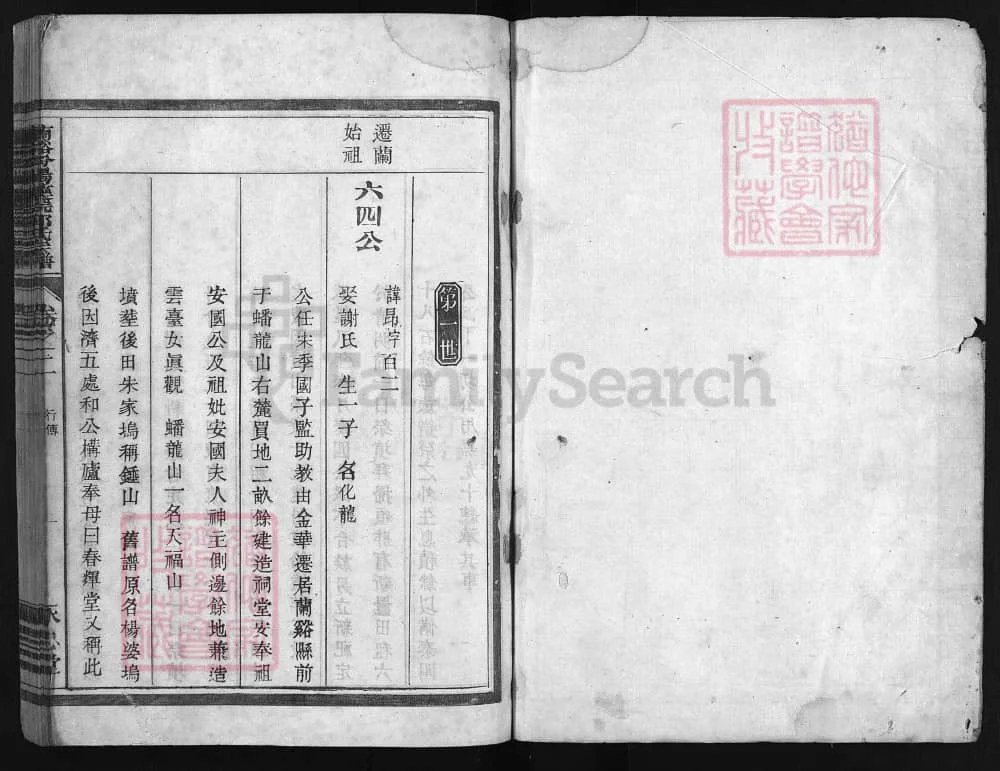 第一世
遷蘭
始祖
六四公
諱昂字百二
娶謝氏 生一子 名化龍
公任宋季國子監助教由金華遷居蘭谿縣前
于蟠龍山右麓買地二畝餘建造祠堂安奉祖
安國公及祖妣安國夫人神主側邊餘地兼造
雲臺女眞觀 蟠龍山一名天福山
墳塟後田朱家塢稱錘山 舊譜原名楊婆塢
後因濟五處和公構廬奉母曰春暉堂又稱此
宗譜
卷之二
行傳
一
永思堂
譜學會
收藏
FamilySearch